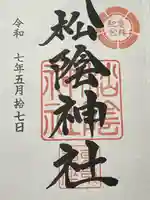 松陰神社
令和
七年五月十七日
松陰神社